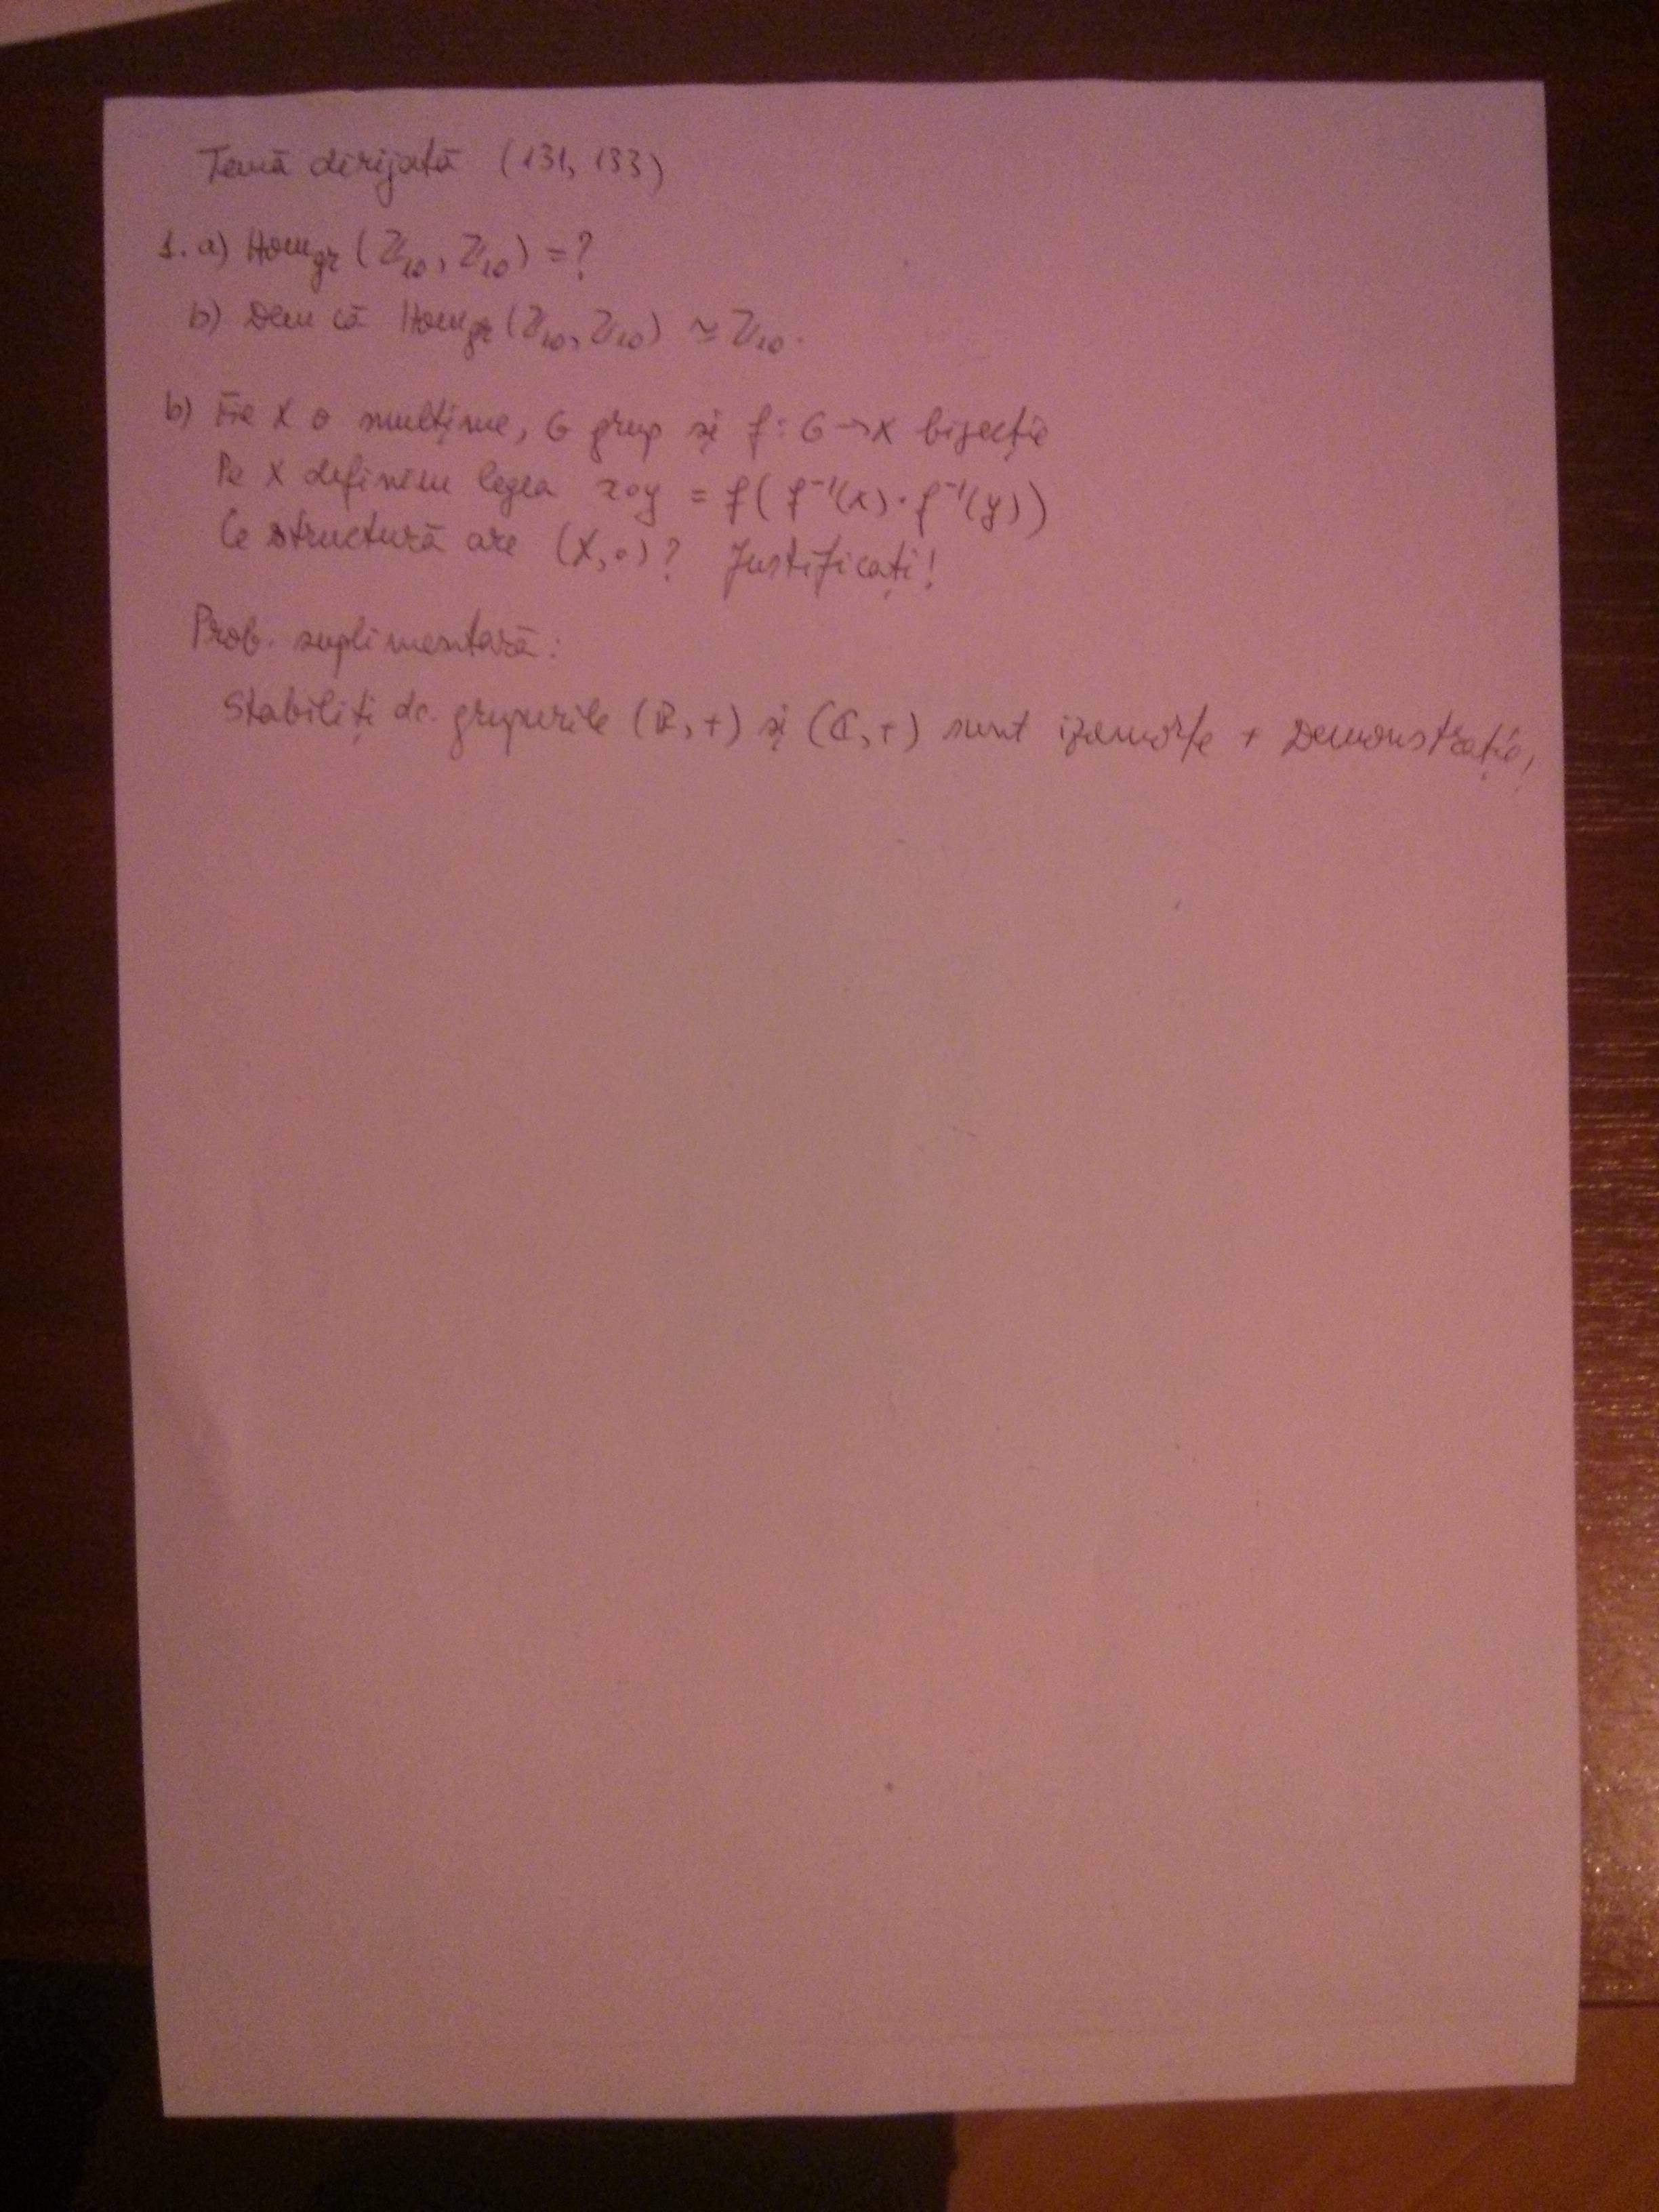 Temă dirijată (131, 133)
1. a) Hom_gr (ℤ₁₀, ℤ₁₀) = ?
b) Dem că Hom_gr (ℤ₁₀, ℤ₁₀) ≃ ℤ₁₀.
b) Fie X o mulțime, G grup și f: G → X bijecție
Pe X definim legea x∘y = f( f⁻¹(x) · f⁻¹(y))
Ce structură are (X, ∘)? Justificați!
Prob. suplimentară:
Stabiliți dc. grupurile (ℝ, +) și (ℂ, +) sunt izomorfe + Demonstrație!